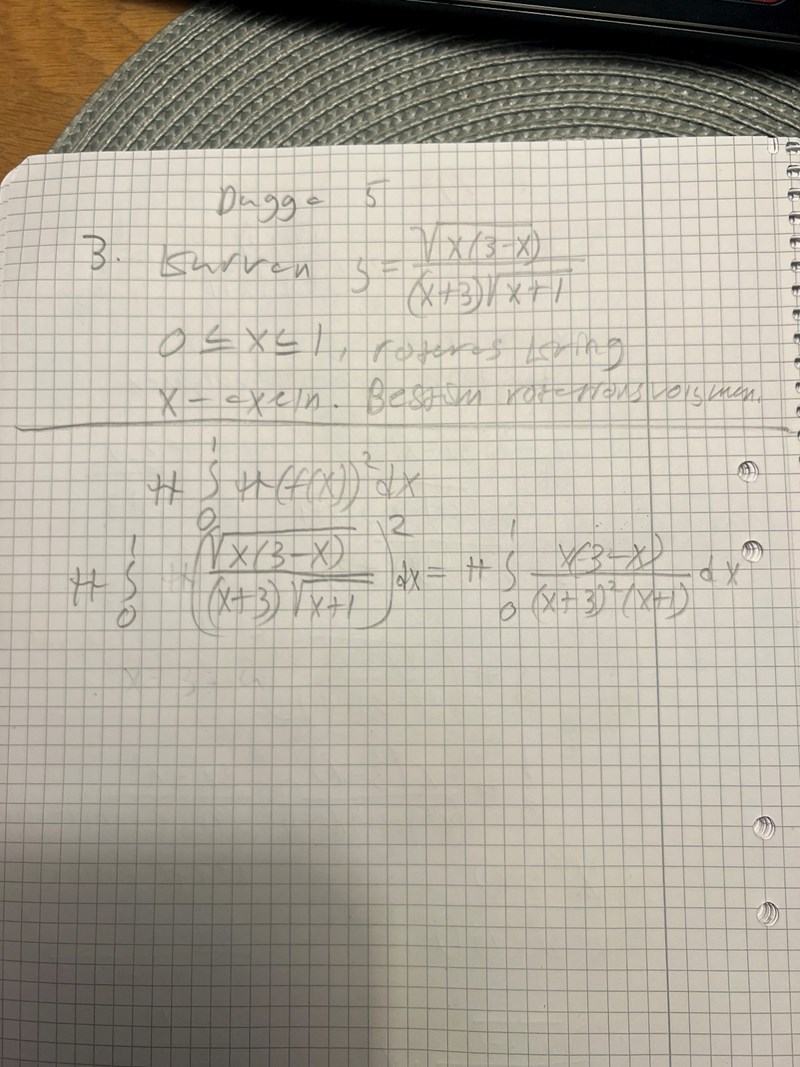 Dugga 5
3. Kurvan y = √(x(3-x)) / ((x+3)√(x+1))
0 ≤ x ≤ 1, roteras kring
x-axeln. Bestäm rotationsvolymen.
π ∫₀¹ π(f(x))² dx
π ∫₀¹ (√(x(3-x)) / ((x+3)√(x+1)))² dx = π ∫₀¹ x(3-x) / ((x+3)²(x+1)) dx